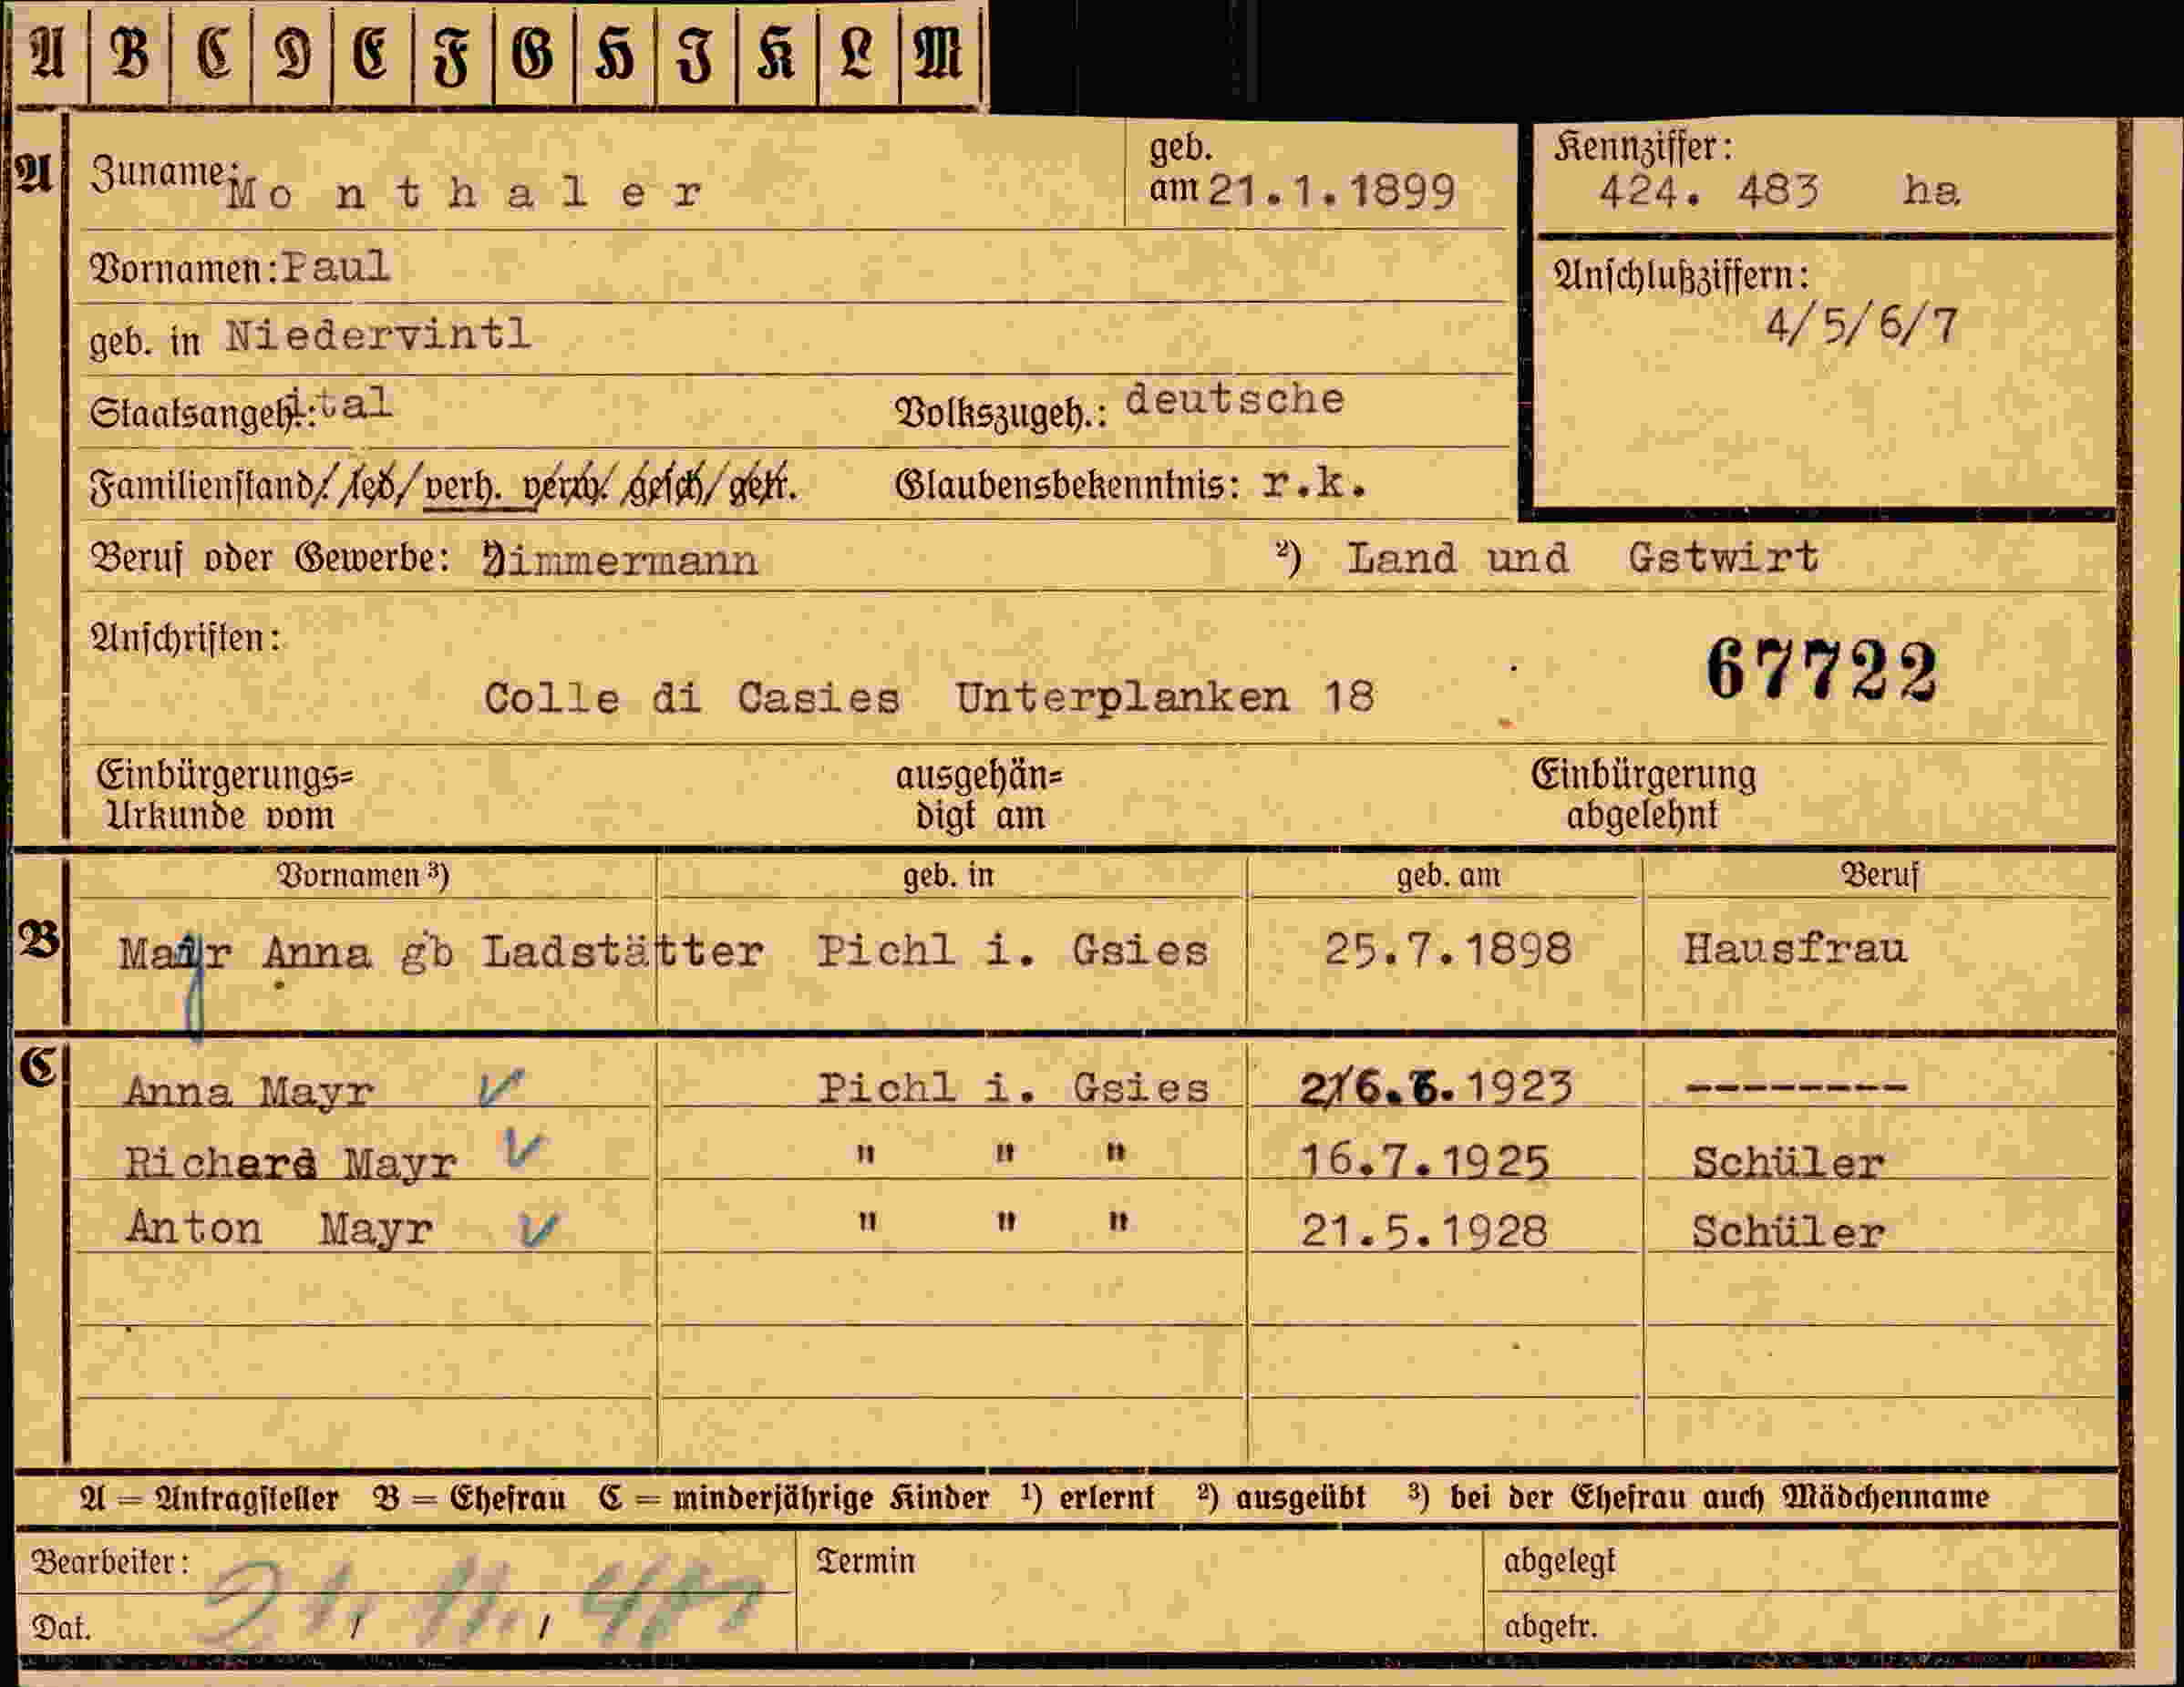 A B C D E F G H I K L M
A Zuname: Monthaler geb. am 21.1.1899 Kennziffer: 424. 483 ha
Vornamen: Paul
geb. in Niedervintl Anschlußziffern: 4/5/6/7
Staatsangeh.: ital Volkszugeh.: deutsche
Familienstand: led. verh. verw. gesch. getr. Glaubensbekenntnis: r.k.
Beruf oder Gewerbe: Zimmermann ²) Land und Gstwirt
Anschriften: 67722
Colle di Casies Unterplanken 18
Einbürgerungs= ausgehän= Einbürgerung
Urkunde vom digt am abgelehnt
Vornamen ³) geb. in geb. am Beruf
B Mayr Anna gb Ladstätter Pichl i. Gsies 25.7.1898 Hausfrau
C Anna Mayr V Pichl i. Gsies 26.6.1923 --------
Richard Mayr V " " " 16.7.1925 Schüler
Anton Mayr V " " " 21.5.1928 Schüler
A = Antragsteller B = Ehefrau C = minderjährige Kinder ¹) erlernt ²) ausgeübt ³) bei der Ehefrau auch Mädchenname
Bearbeiter: Termin abgelegt
Dat. abgetr.